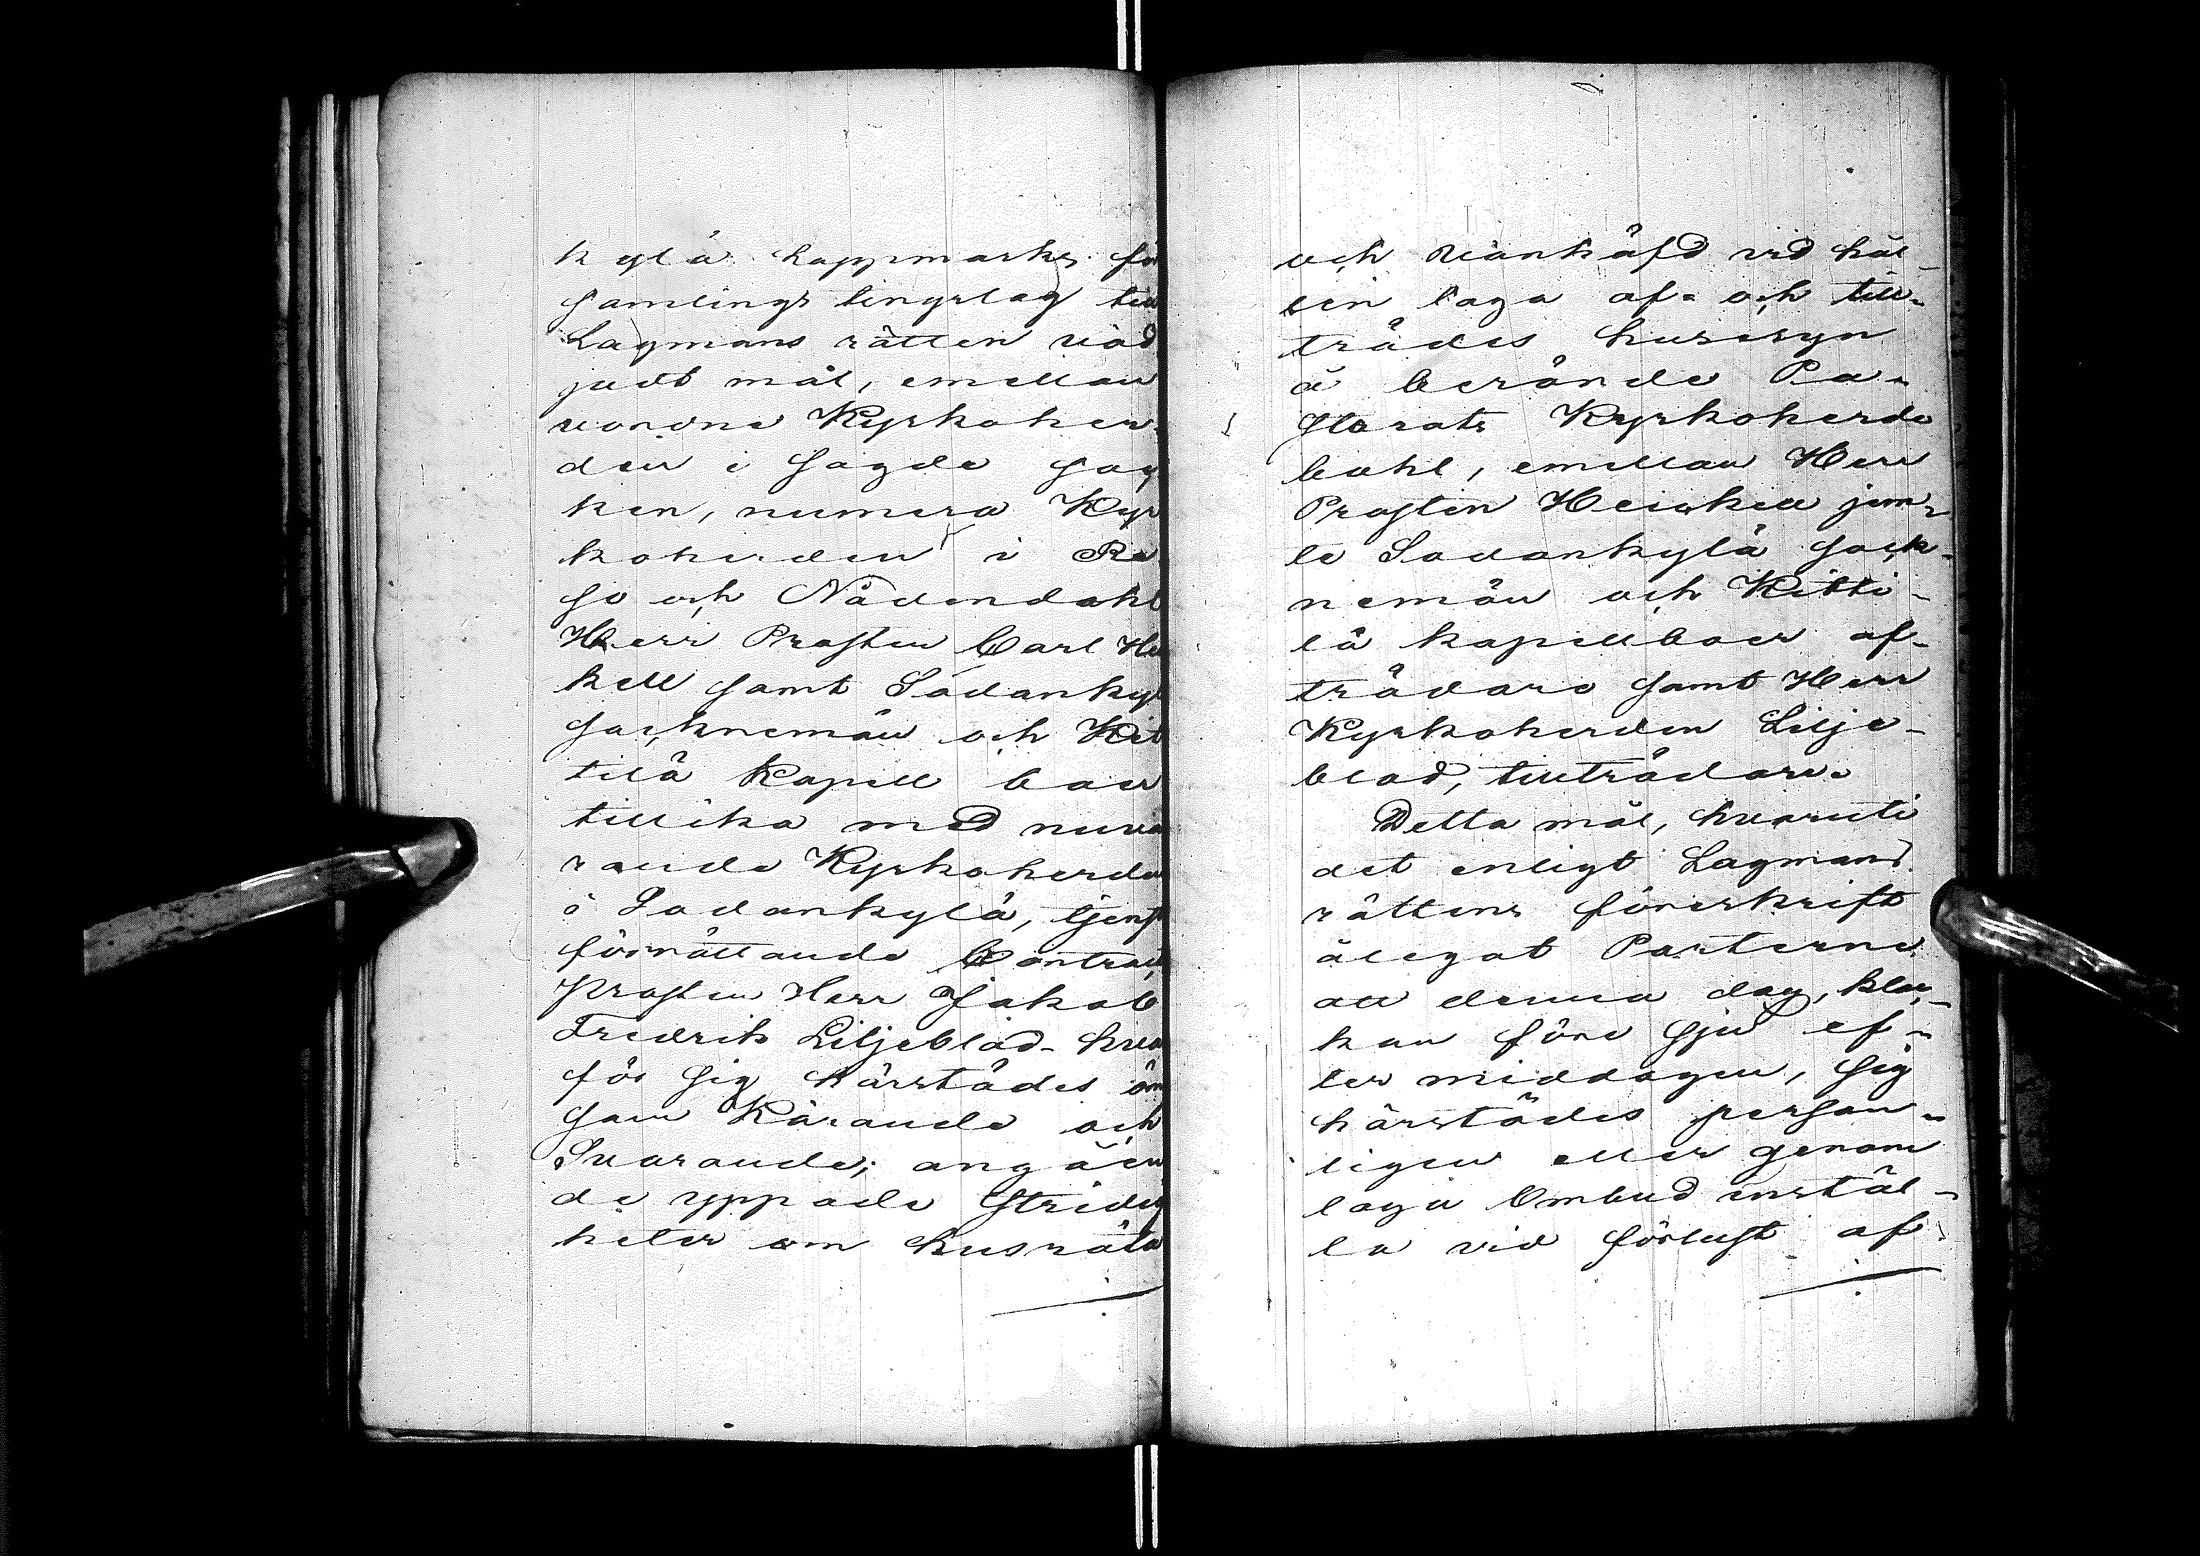 kylä Lappmarks för
samlings tingslag till
Lagmans rätten väd
jadt mål, emellan
vordne Kyrkoher-
den i sagde Soc
ken, numera Kyr
koherden i Re
so och Nådendahl
Herr Prosten Carl He
kell samt Sodankyl
socknemän och Kit
tilä Kapell boer
tillika med nuva
rande Kyrkoherde
i Sodankylä, tjenst
förrättande Contract
Prosten Herr Jakob
Fredrik Liljeblad- hva
för sig härstädes öm
som Kärande och
Svarande; angåen
de yppade stridig
heter om husröta
och vanhäfd vid hål-
len laga af= och till-
trädes husesyn
å berörde Pa-
storats Kyrkoherde
bohl, emellan Herr
Prosten Heickell jem-
te Sodankylä sock-
nemän och Kitti-
lä kapellboer af-
trädare samt Herr
Kyrkoherden Lilje-
blad, tillträdare.
Detta mål, hvaruti
det enligt Lagmans
rättens föreskrift
ålegat Parterne
att denna dag, kloc-
kan före sju ef-
ter middagen, sig
härstädes person-
ligen eller genom
laga Ombud instäl-
la vid förlust af